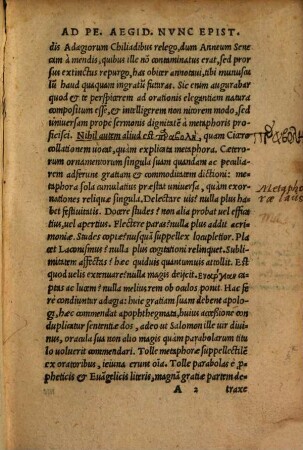 AD PE. AEGID. NVNC EPIST.
dis Adagiorum Chiliadibus relego, dum Anneum Sene
cam à mendis, quibus ille nõ contaminatus erat, sed pror
sus extinctus repurgo, hæc obiter annotaui, tibi munuscu
lũ haud quaquam ingratũ futuræ. Sic enim augurabar
quod & te perspicierem ad orationis elegantiam natura
compositum esse, & intelligerem non nitorem modo, sed
uniuersam prope sermonis dignitatẽ à metaphoris profi
cisci. Nihil autem aliud est παραβολὴ, quam Cicero
collationem uocat, quàm explicata metaphora. Cætero
rum ornamentorum singula suam quandam ac peculia
rem adferunt gratiam & commoditatem dictioni: me
taphora sola cumulatius præstat uniuersa, quàm exor
nationes reliquæ singula. Delectare uis? nulla plus ha
bet festiuitatis. Docere studes? non alia probat uel effica
tius, uel apertius. Flectere paras? nulla plus addit acri
moniæ. Studes copiæ? nusquã suppellex locupletior. Pla
cet Laconismus? nulla plus cogitationi relinquet. Subli
mitatem affectas? hæc quiduis quantumuis attollit. Est
quod uelis extenuare? nulla magis deijcit. Ἐνάργειαν cap
tas ac lucem? nulla melius rem ob oculos ponit. Hac fe
rè condiuntur adagia: huic gratiam suam debent apolo
gi, hæc commendat apophthegmata, huius accessione con
duplicatur sententiæ dos, adeo ut Salomon ille uir diui
nus, oracula sua non alio magis quàm parabolarum ti
tulo uoluerit commendari. Tolle metaphoræ suppellectilẽ
ex oratoribus, ieiuna erunt oĩa. Tolle parabolas è p
pheticis & Euãgelicis literis, magnã gratiæ partem de-
A 2 traxe
παραβολή
Metapho
ræ laus